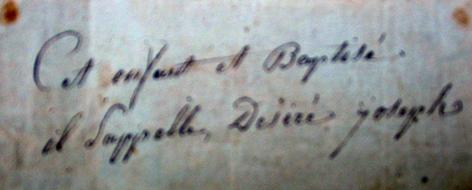 Cet enfant et Baptisé.
il Sappelle, Désiré joseph